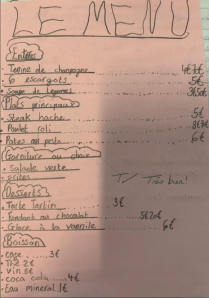 LE MENU
Entrées
• Terrine de champagne ... 4€
6 escargots ... 5€
• Soupe de legumes ... 3€50€
Plats principaux
• Steak hache ... 5€
• Poulet roti ... 8€
• Pates au pesto ... 6€
Garniture au choix
• Salade verte
• frites
T/ Très bien!
Desserts
• Tarte Tartin ... 3€
• Fondant au chocolat ... 5€20€
• Glace à la vanille ... 6€
Boisson
• cafe ... 3€
• Thé 2€
• Vin 5€
• coca cola ... 4€
• Eau mineral 1€